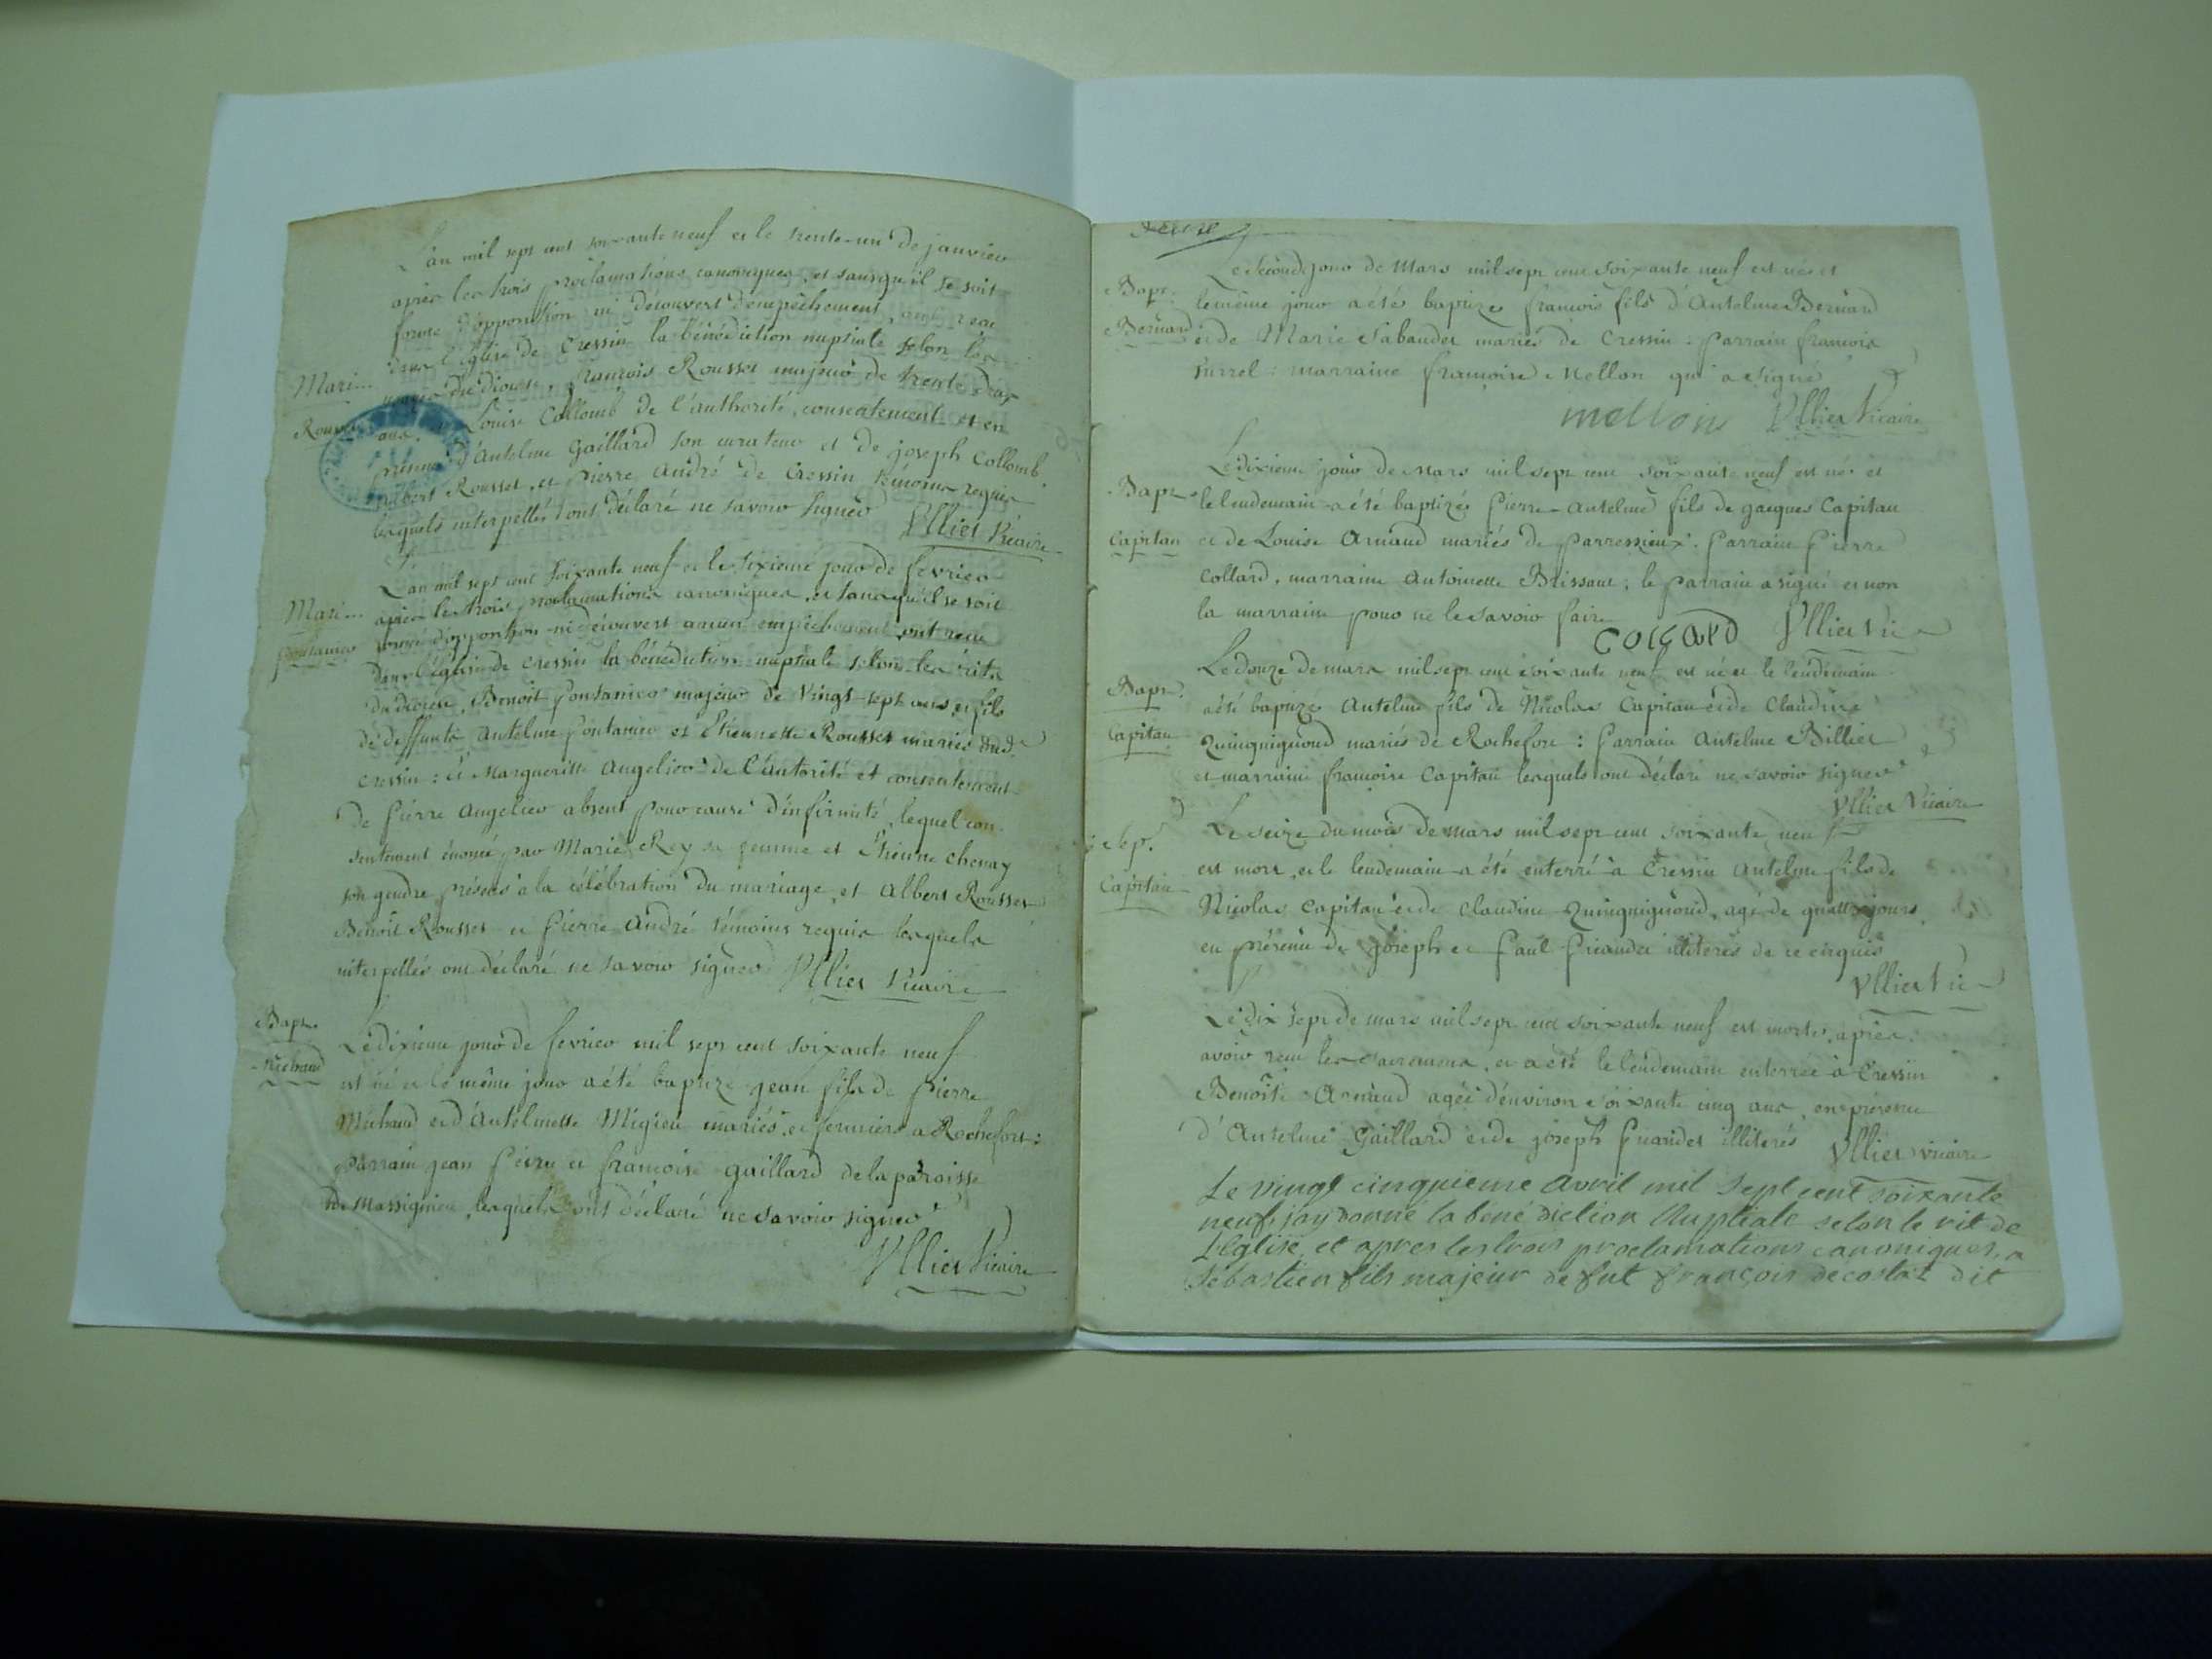 L'an mil sept cent soixante neuf et le trente-un de janvier
après les trois proclamations canoniques, et sans qu'il se soit
formé d'opposition ni découvert d'empêchement, ont reçu
dans l'église de Cressin la bénédiction nuptiale selon les
du diocèse, françois Rousset majeur de trente deux
Mari...
ans, Louise Collomb de l'authorité, consentement et en
Rousset
présence d'Antelme Gaillard son curateur et de joseph Collomb
albert Rousset, et pierre André de Cressin témoins requis
lesquels interpellés ont déclaré ne savoir signer Ullies Vicaire
L'an mil sept cent soixante neuf et le sixieme jour de fevrier
Mari...
après les trois proclamations canoniques, et sans qu'il se soit
pontanier
formé d'opposition ni découvert aucun empêchement ont reçu
dans l'église de Cressin la bénédiction nuptiale selon les rits
du diocèse, Benoit pontanier majeur de vingt-sept ans, et fils
de deffunts Antelme pontanier et Etiennette Rousset mariés dud.
Cressin : et Margueritte Angelier de l'autorité et consentement
de Pierre Angelier absent pour cause d'infirmité, lequel con-
sentement énoncé par Marie Rey sa femme et Étienne chenay
son gendre présens à la célébration du mariage, et Albert Rousset
Benoit Rousset et Pierre André témoins requis lesquels
interpellés ont déclaré ne savoir signer Ullies Vicaire
Bapt.
Michaud
Le dixieme jour de fevrier mil sept cent soixante neuf
est né et le même jour a été baptizé jean fils de Pierre
Michaud et d'Antelmette Migieu mariés et fermiers a Rochefort :
Parrain jean et françoise gaillard de la paroisse
de Massignieu, lesquels ont déclaré ne savoir signer
Ullies Vicaire
Le second jour de Mars mil sept cent soixante neuf est né et
Bapt.
le même jour a été baptizé francois fils d'Antelme Bernard
Bernard
et de Marie Sabaudet mariés de Cressin : parrain francois
surrel : marraine françoise Mellon qui a signé
mellon Ullies Vicaire
Le dixieme jour de Mars mil sept cent soixante neuf est né et
Bapt.
le lendemain a été baptizé Pierre-Antelme fils de jacques Capitan
Capitan
et de Louise Arnaud mariés de Parressieux. Parrain Pierre
Collard, marraine Antoinette Brissaut, le parrain a signé et non
la marraine pour ne le savoir faire
Collard Ullies Vic
Le douze de mars mil sept cent soixante neuf est né et le lendemain
Bapt.
a été baptizé Antelme fils de Nicolas Capitan et de Claudine
Capitan
Quinquignoud mariés de Rochefort : Parrain Antelme Billiet
et marraine françoise Capitan lesquels ont déclaré ne savoir signer
Ullies Vicaire
Le seize du mois de mars mil sept cent soixante neuf
Sep.
est mort, et le lendemain a été enterré à Cressin Antelme fils de
Capitan
Nicolas Capitan et de Claudine Quinquignoud, agé de quattre jours
en présence de joseph et Paul illiterés de ce enquis
Ullies Vic
Le dix sept de mars mil sept cent soixante neuf est morte, après
avoir reçu les sacremens, et a été le lendemain enterrée à Cressin
Benoîte Arnaud agée d'environ soixante cinq ans, en présence
d'Antelme Gaillard et de joseph illiterés Ullies vicaire
Le vingt cinquieme Avril mil Sept cent soixante
neuf, jay donné la bené diction Nuptiale selon le rit de
L'Eglise, et apres les trois proclamations canoniques, a
Sebastien fils majeur de fut françois decostaz dit